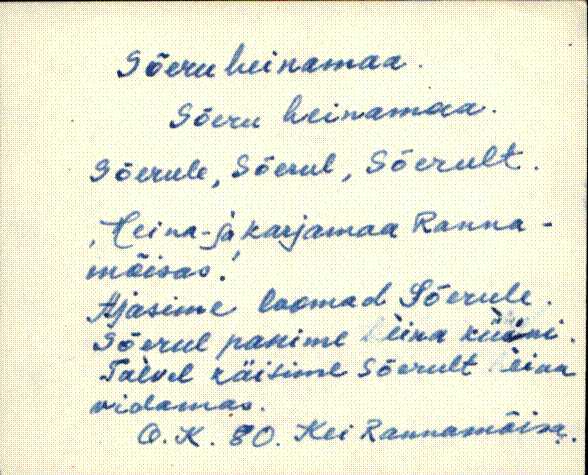 Sõeru heinamaa.
Sõeru heinamaa.
Sõerule, Sõerul, Sõerult.
'Heina- ja karjamaa Ranna-
mõisas.'
Ajasime loomad Sõerule.
Sõerul panime heina küüni.
Talvel käisime Sõerult heina
vidamas.
O.K. 80. Kei Rannamõisa.